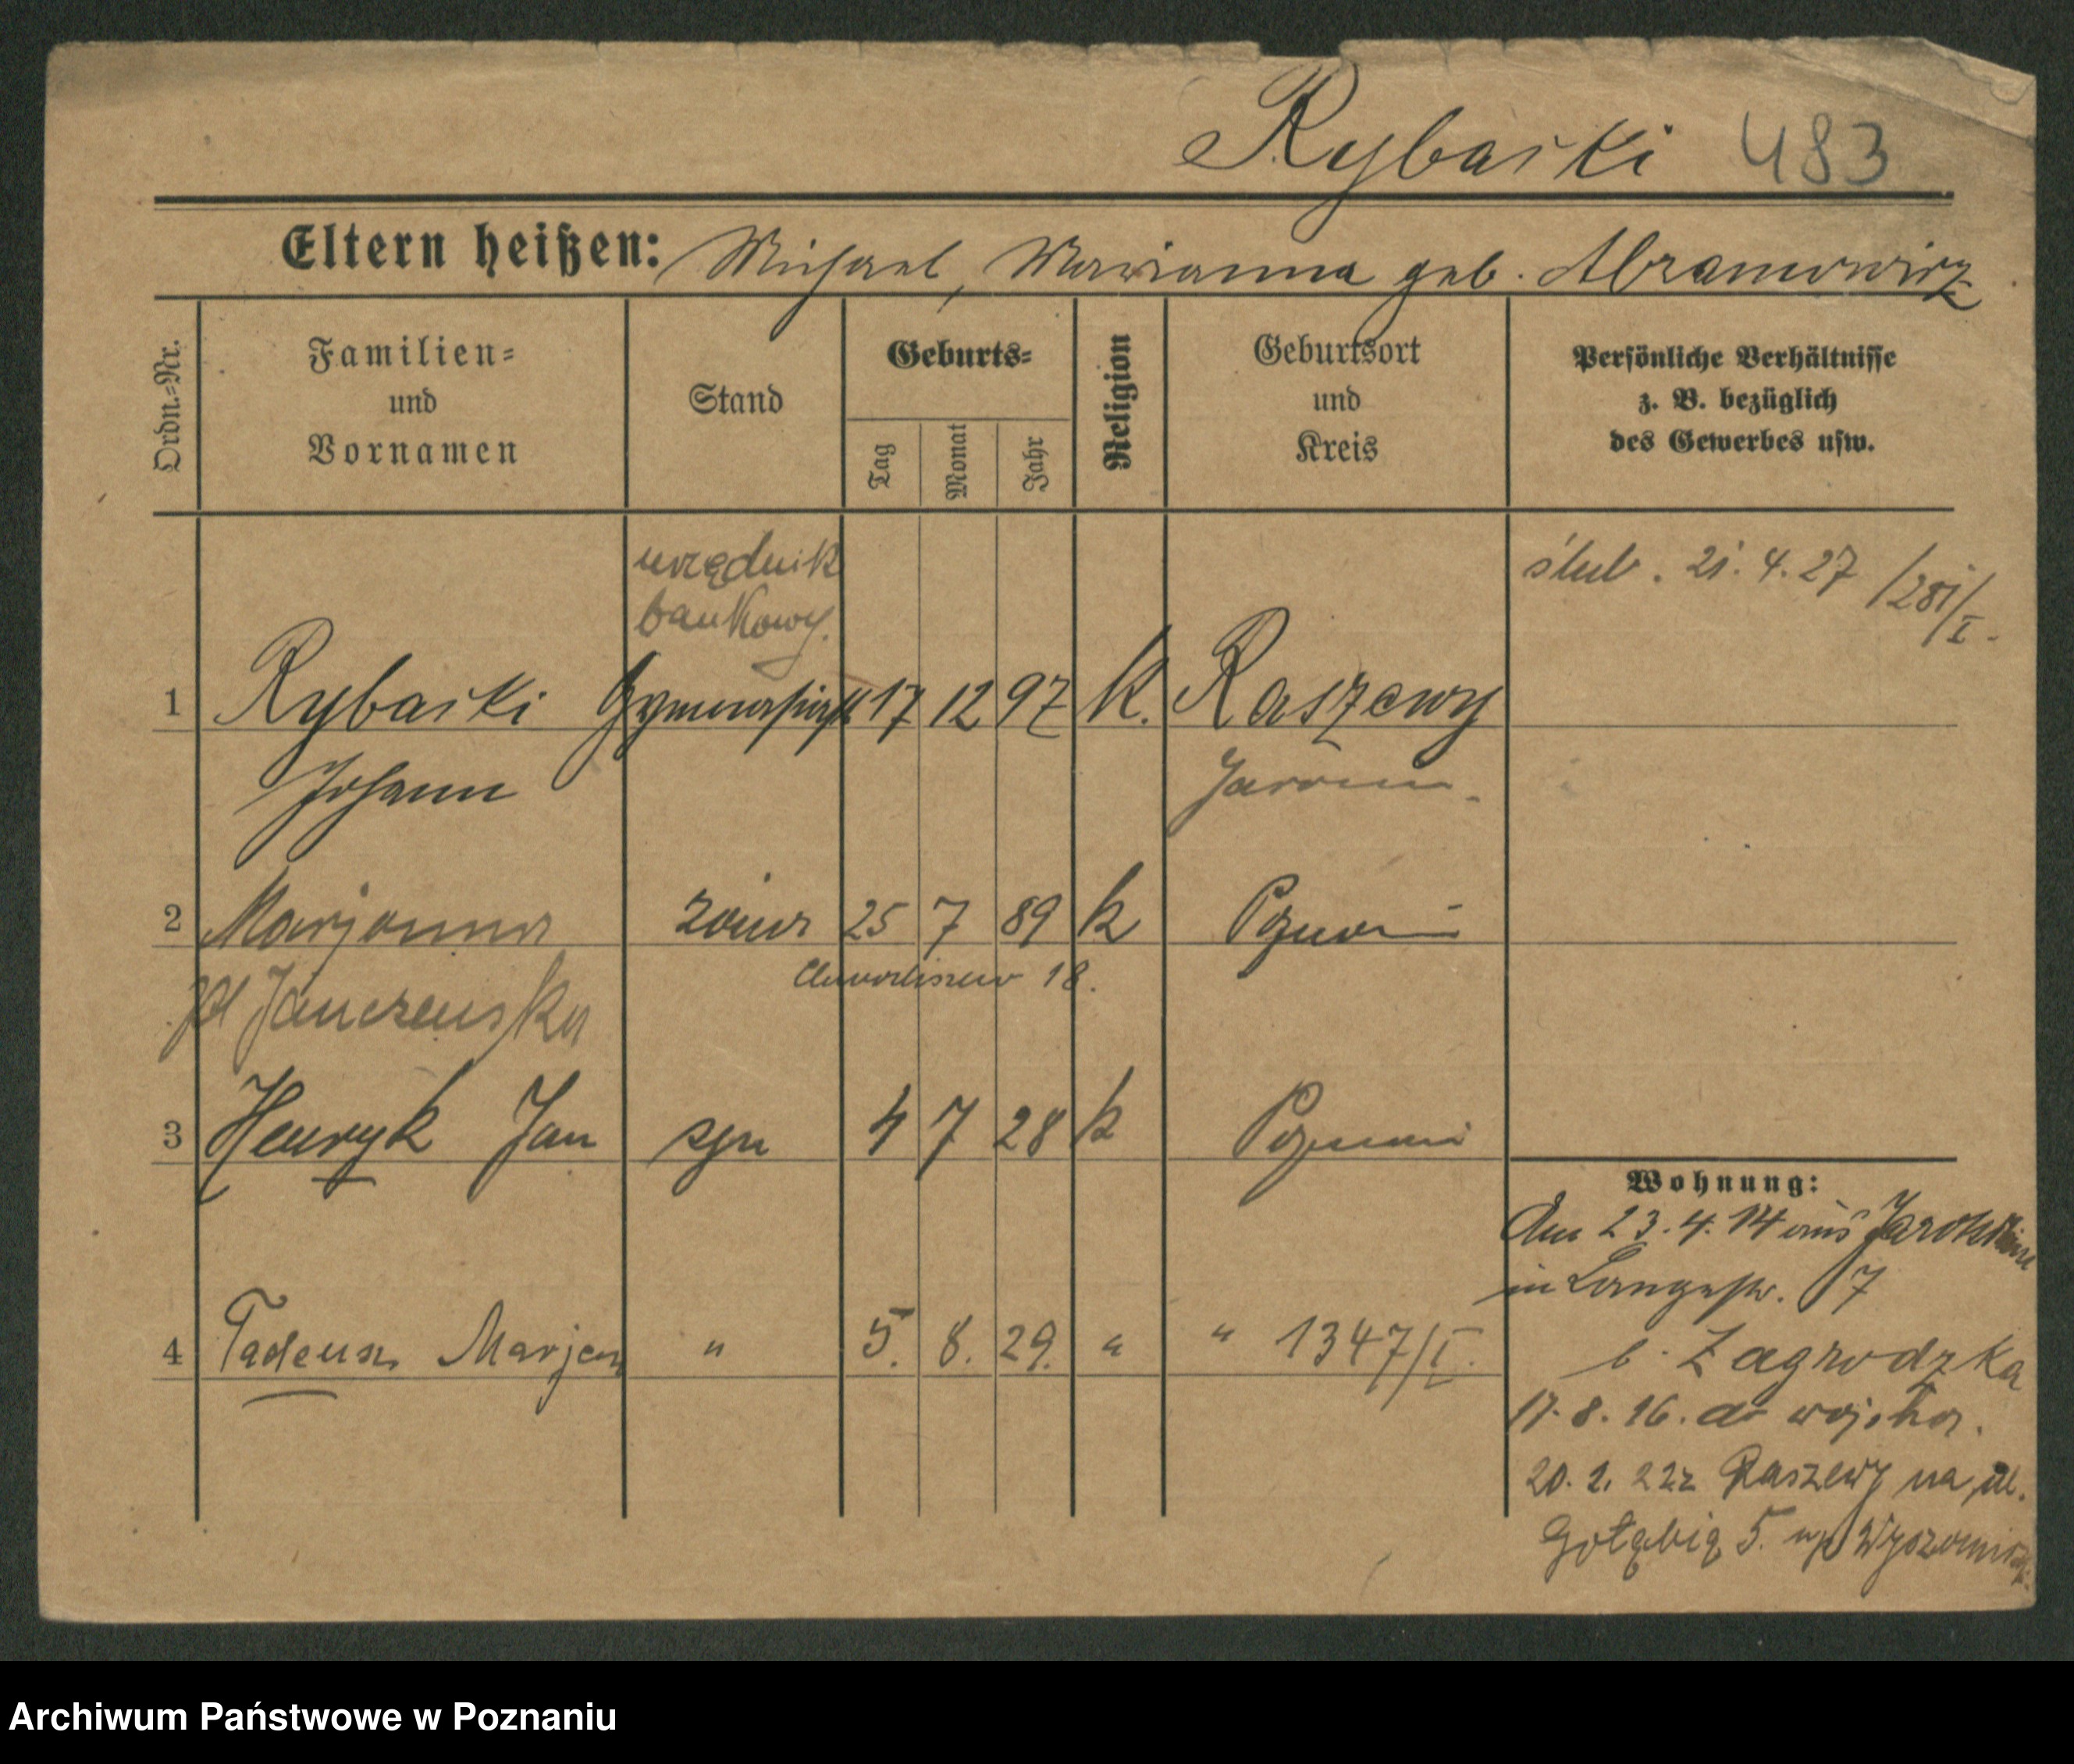 Rybarski 483
Eltern heißen: Michael, Marianna geb. Abramowicz
Ordn.-Nr.
Familien-
und
Vornamen
Stand
Geburts-
Tag
Monat
Jahr
Religion
Geburtsort
und
Kreis
Persönliche Verhältnisse
z. B. bezüglich
des Gewerbes usw.
urzędnik
bankowy.
ślub. 21. 4. 27 /281/I.
1 Rybarski Gymnasiast 17 12 97 k. Raszewy
Johann Jarocin
2 Marjanna żona 25 7 89 k Poznań
18.
Janczewska
3 Henryk Jan syn 4 7 28 k Poznań
Wohnung:
Am 23. 4. 14 aus Jarotschin
in Langestr. 7
4 Tadeusz Marjan " 5. 8. 29. " " 1347/I.
b. Zagrodzka
17. 8. 16. do wojska.
20. 2. 22 z Raszewy na ul.
Gołębią 5.
Archiwum Państwowe w Poznaniu